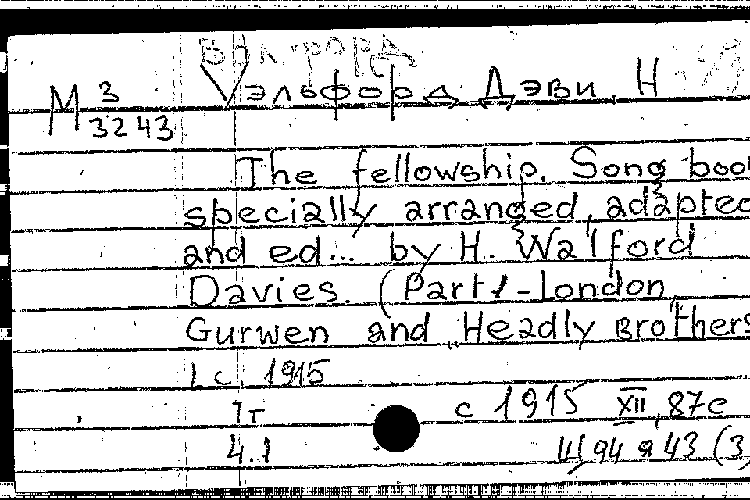 Уэльфорд Дэви, Н
М 3
3243
The fellowship. Song boo
specially arranged, adapted
and ed... by H. Walford
Davies. (Part 1-London,
Gurwen and Headly Brothers
c 1915
1т c 1915 XII, 87с
4.1 Ш 94 я 43 (3,